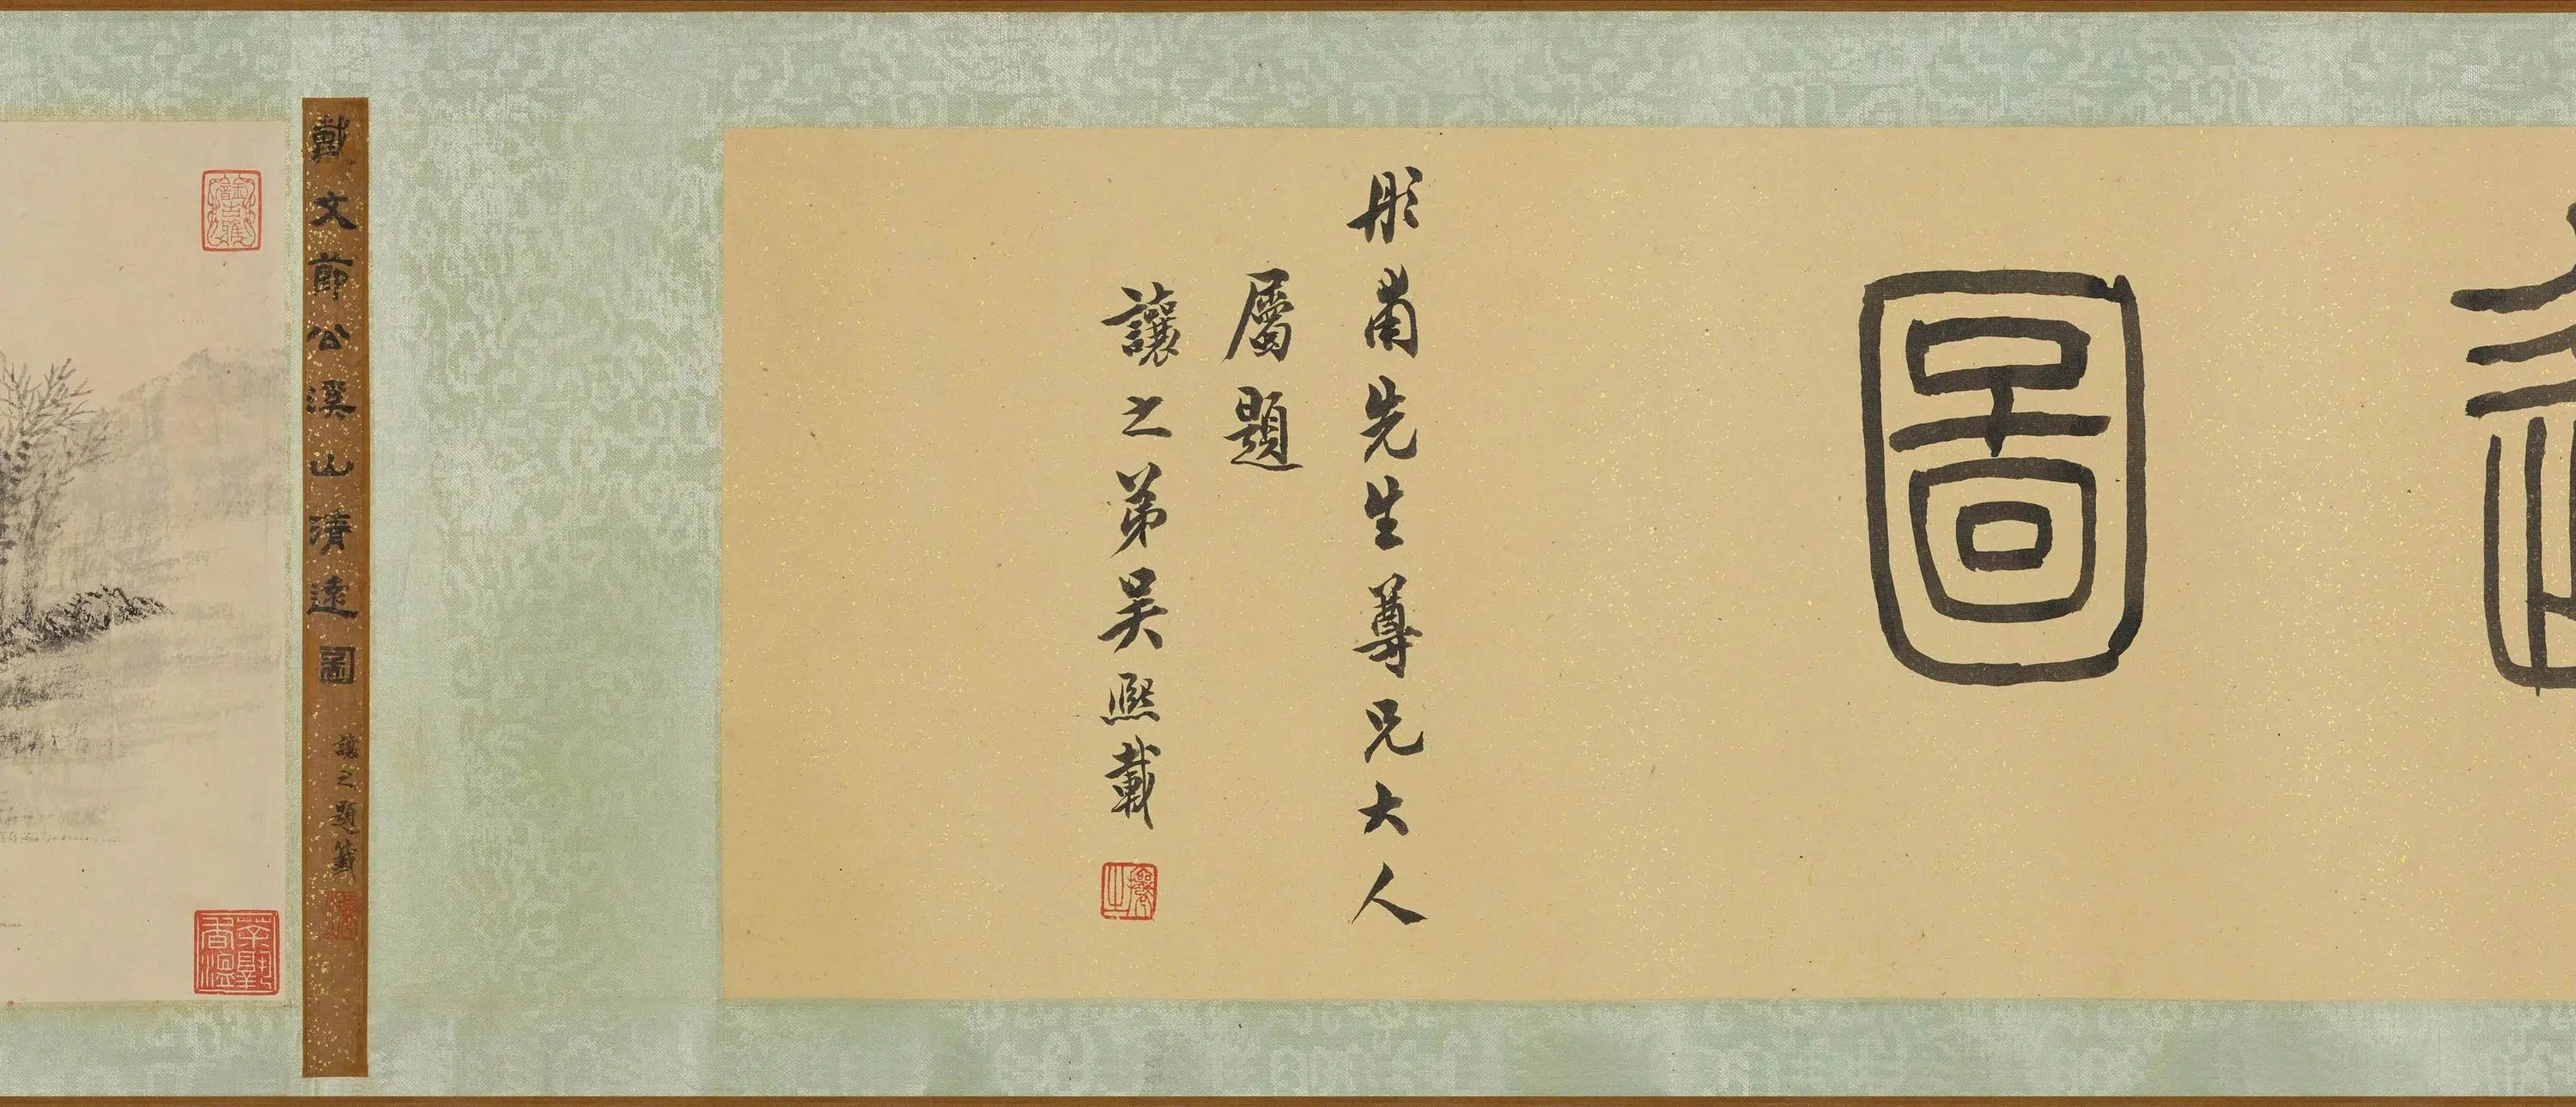 遠
圖
彤甫先生尊兄大人
屬題
讓之弟吳熙載
戴文節公溪山清遠圖
讓之題籤